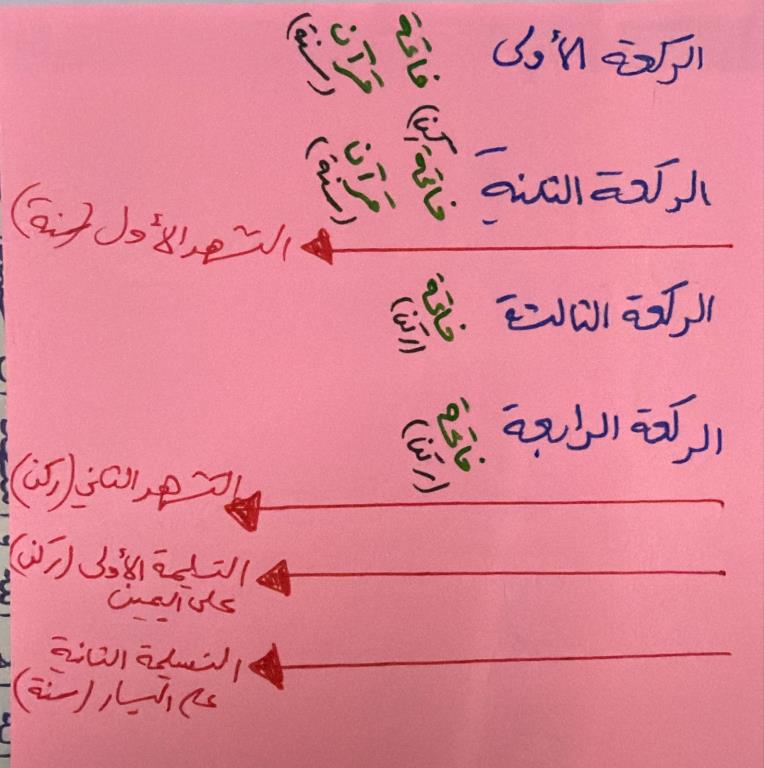 الركعة الأولى فاتحة قرآن (سنة)
(ركن)
الركعة الثنية فاتحة قرآن (سنة)
التشهد الأول (سنة)
الركعة الثالثة فاتحة (ركن)
الركعة الرابعة فاتحة (ركن)
التشهد الثاني (ركن)
التسليمة الأولى (ركن)
على اليمين
التسليمة الثانية
على اليسار (سنة)